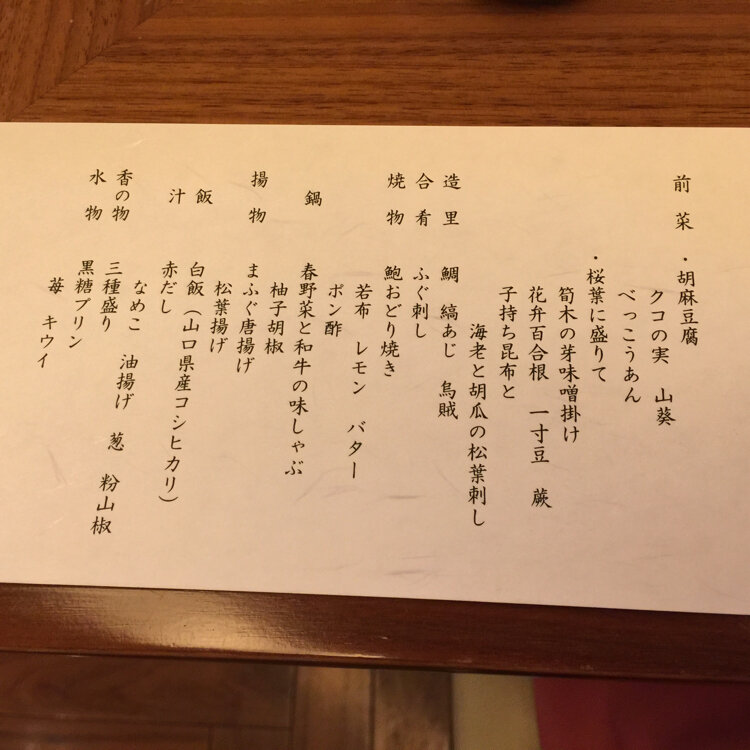 前菜 ・胡麻豆腐
クコの実 山葵
べっこうあん
・桜葉に盛りて
筍木の芽味噌掛け
花弁百合根 一寸豆 蕨
子持ち昆布と
海老と胡瓜の松葉刺し
造里 鯛 縞あじ 烏賊
合肴 ふぐ刺し
焼物 鮑おどり焼き
若布 レモン バター
ポン酢
鍋 春野菜と和牛の味しゃぶ
柚子胡椒
揚物 まふぐ唐揚げ
松葉揚げ
飯 白飯(山口県産コシヒカリ)
汁 赤だし
なめこ 油揚げ 葱 粉山椒
香の物 三種盛り
水物 黒糖プリン
苺 キウイ